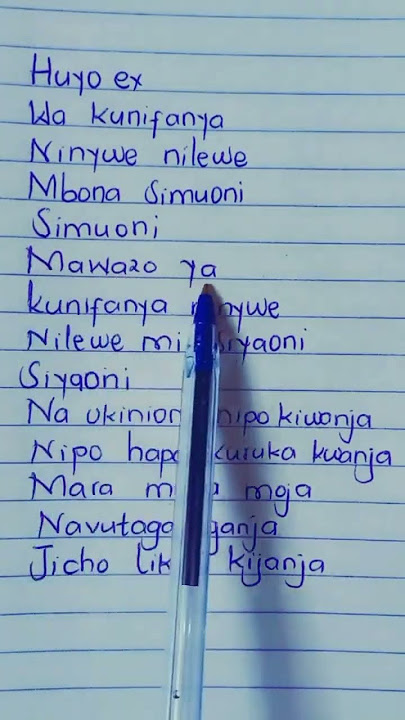 Huyo ex
Wa kunifanya
Ninywe nilewe
Mbona Simuoni
Simuoni
Mawazo ya
kunifanya ninywe
Nilewe mi siyaoni
Siyaoni
Na ukinion nipo kiwanja
Nipo hapa kuruka kwanja
Mara moja
Navutaga ganja
Jicho kijanja